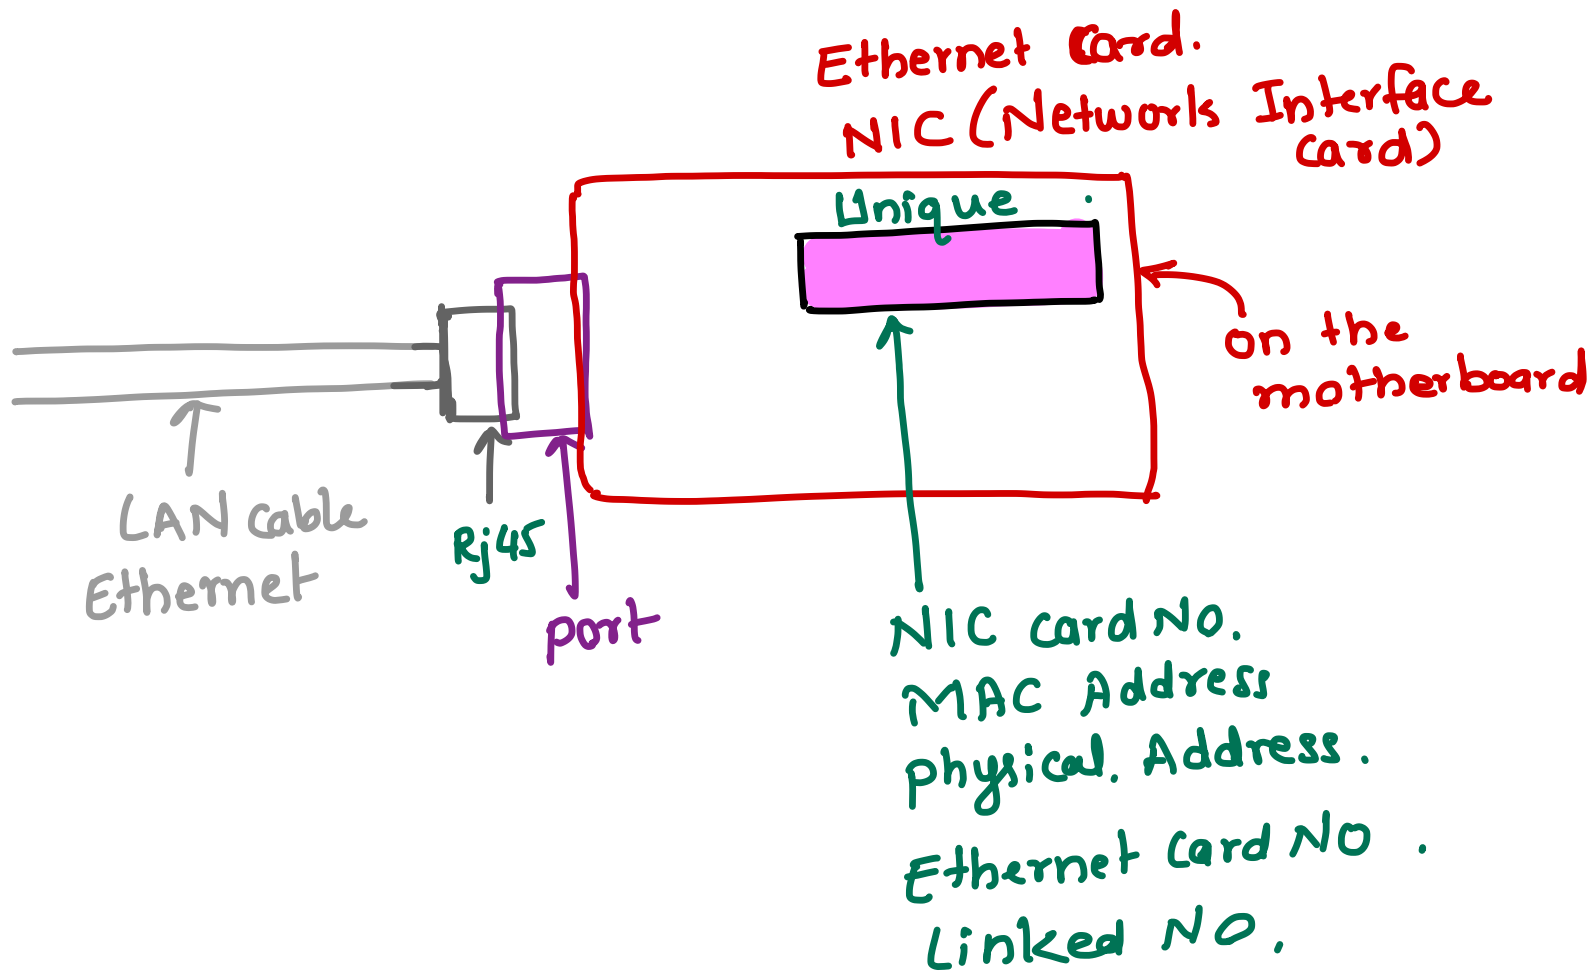 Ethernet Card.
NIC (Network Interface
Card)
Unique
on the
motherboard
LAN cable
Ethernet
Rj45
port
NIC card No.
MAC Address
physical. Address.
Ethernet Card NO.
Linked NO.